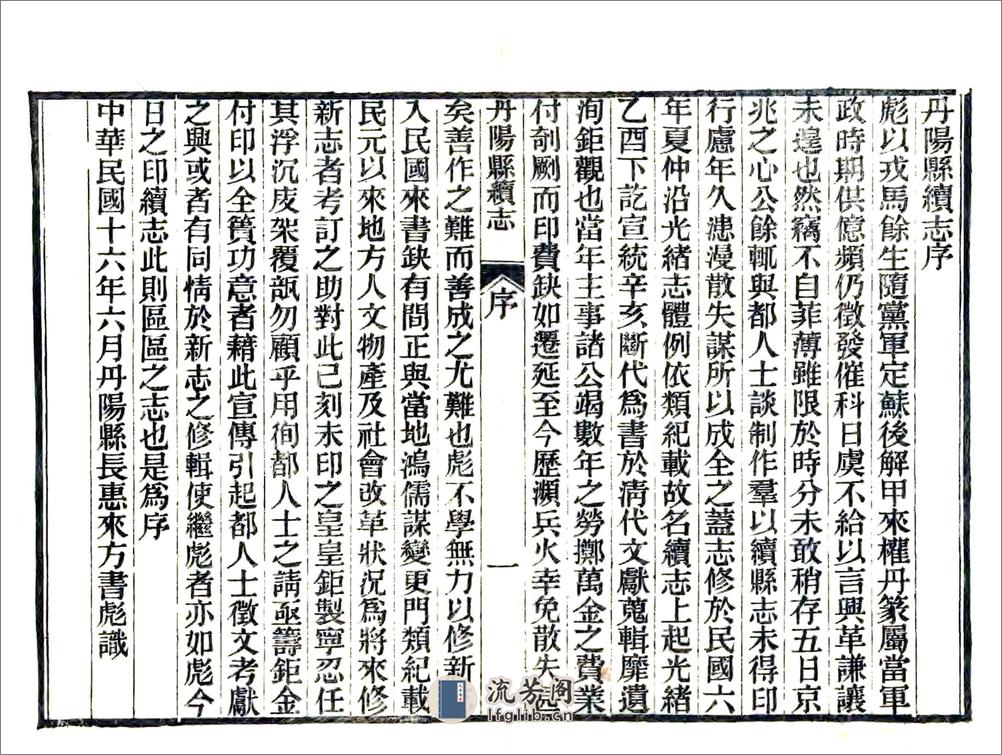 丹陽縣續志序
彪以戎馬餘生隨黨軍定蘇後解甲來權丹篆屬當軍
政時期供億頻仍徵發催科日虞不給以言興革謙讓
未遑也然竊不自菲薄雖限於時分未敢稍存五日京
兆之心公餘輒與都人士談制作羣以續縣志未得印
行慮年久漶漫散失謀所以成全之蓋志修於民國六
年夏仲沿光緒志體例依類紀載故名續志上起光緒
乙酉下訖宣統辛亥斷代爲書於清代文獻蒐輯靡遺
洵鉅觀也當年主事諸公竭數年之勞擲萬金之費業
付剞劂而印費缺如遷延至今歷瀕兵火幸免散失
丹陽縣續志
序
一
矣善作之難而善成之尤難也彪不學無力以修新
入民國來書缺有間正與當地鴻儒謀變更門類紀載
民元以來地方人文物產及社會改革狀況爲將來修
新志者考訂之助對此已刻未印之皇皇鉅製寧忍任
其浮沉庋架覆瓿勿顧乎用徇都人士之請亟籌鉅金
付印以全簣功意者藉此宣傳引起都人士徵文考獻
之興或者有同情於新志之修輯使繼彪者亦如彪今
日之印續志此則區區之志也是爲序
中華民國十六年六月丹陽縣長惠來方書彪識
流芳閣
lfglib.cn